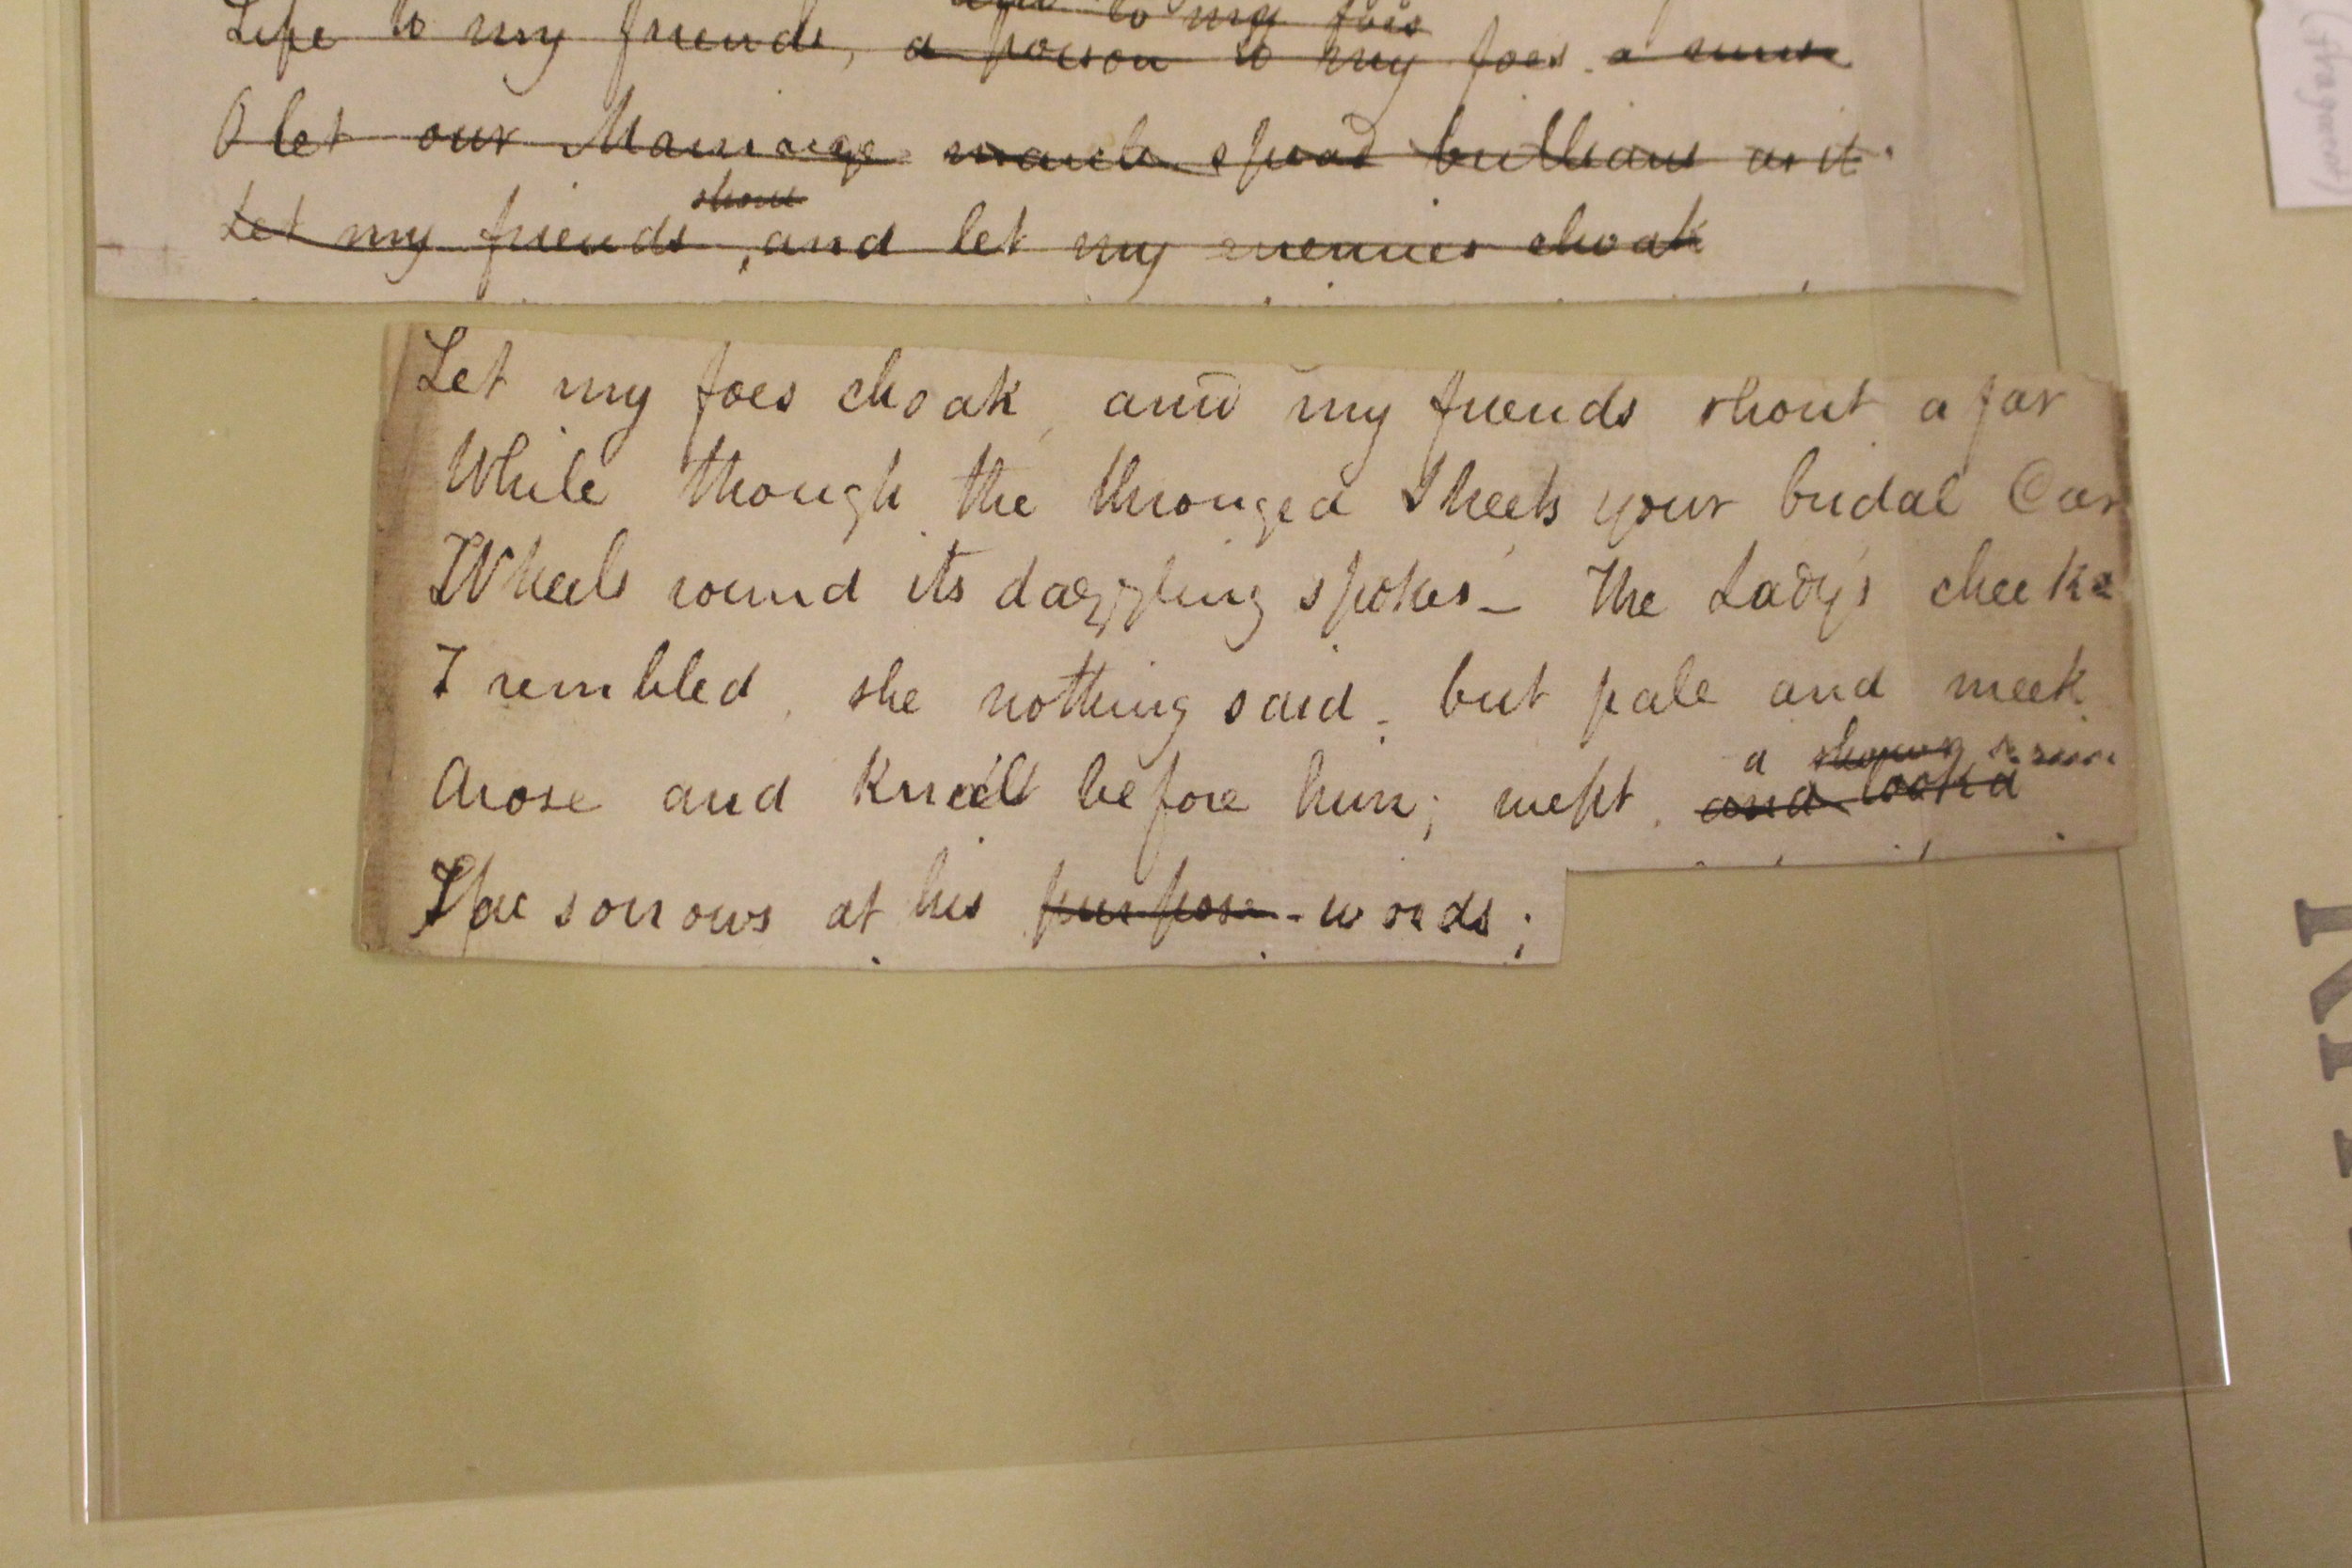 to my foes
Life to my friends, a poison to my foes. a
O let our Marriage march spread brilliant as it
shout
Let my friends, and let my enemies choak
Let my foes choak, and my friends shout afar
While though the thronged Streets your bridal Car
Wheels round its dazzling spokes — The Lady's cheek
Trembled, she nothing said, but pale and meek
a
Arose and knelt before him; wept, and look'd
The sorrows at his purpose - words;
(fragment)